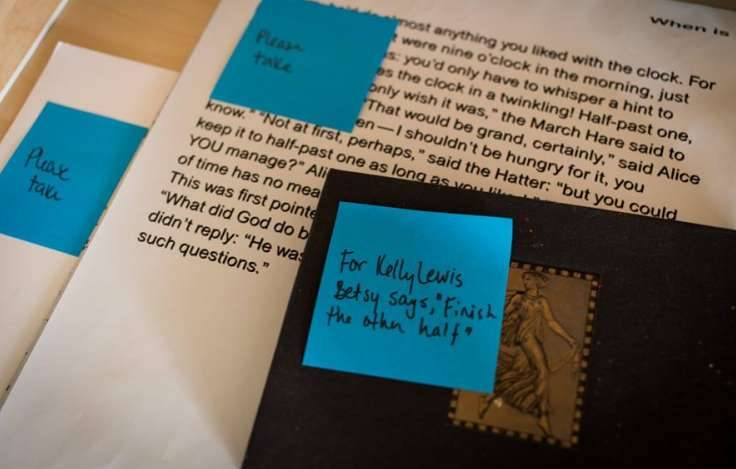 When is
most anything you liked with the clock. For
were nine o'clock in the morning, just
you'd only have to whisper a hint to
the clock in a twinkling! Half-past one,
only wish it was," the March Hare said to
"That would be grand, certainly," said Alice
en—I shouldn't be hungry for it, you
know." "Not at first, perhaps," said the Hatter: "but you could
keep it to half-past one as long as you
YOU manage?" Ali
of time has no mea
This was first pointe
"What did God do b
didn't reply: "He was
such questions."
Please
take
Please
take
For Kelly Lewis
Betsy says, "Finish
the other half"